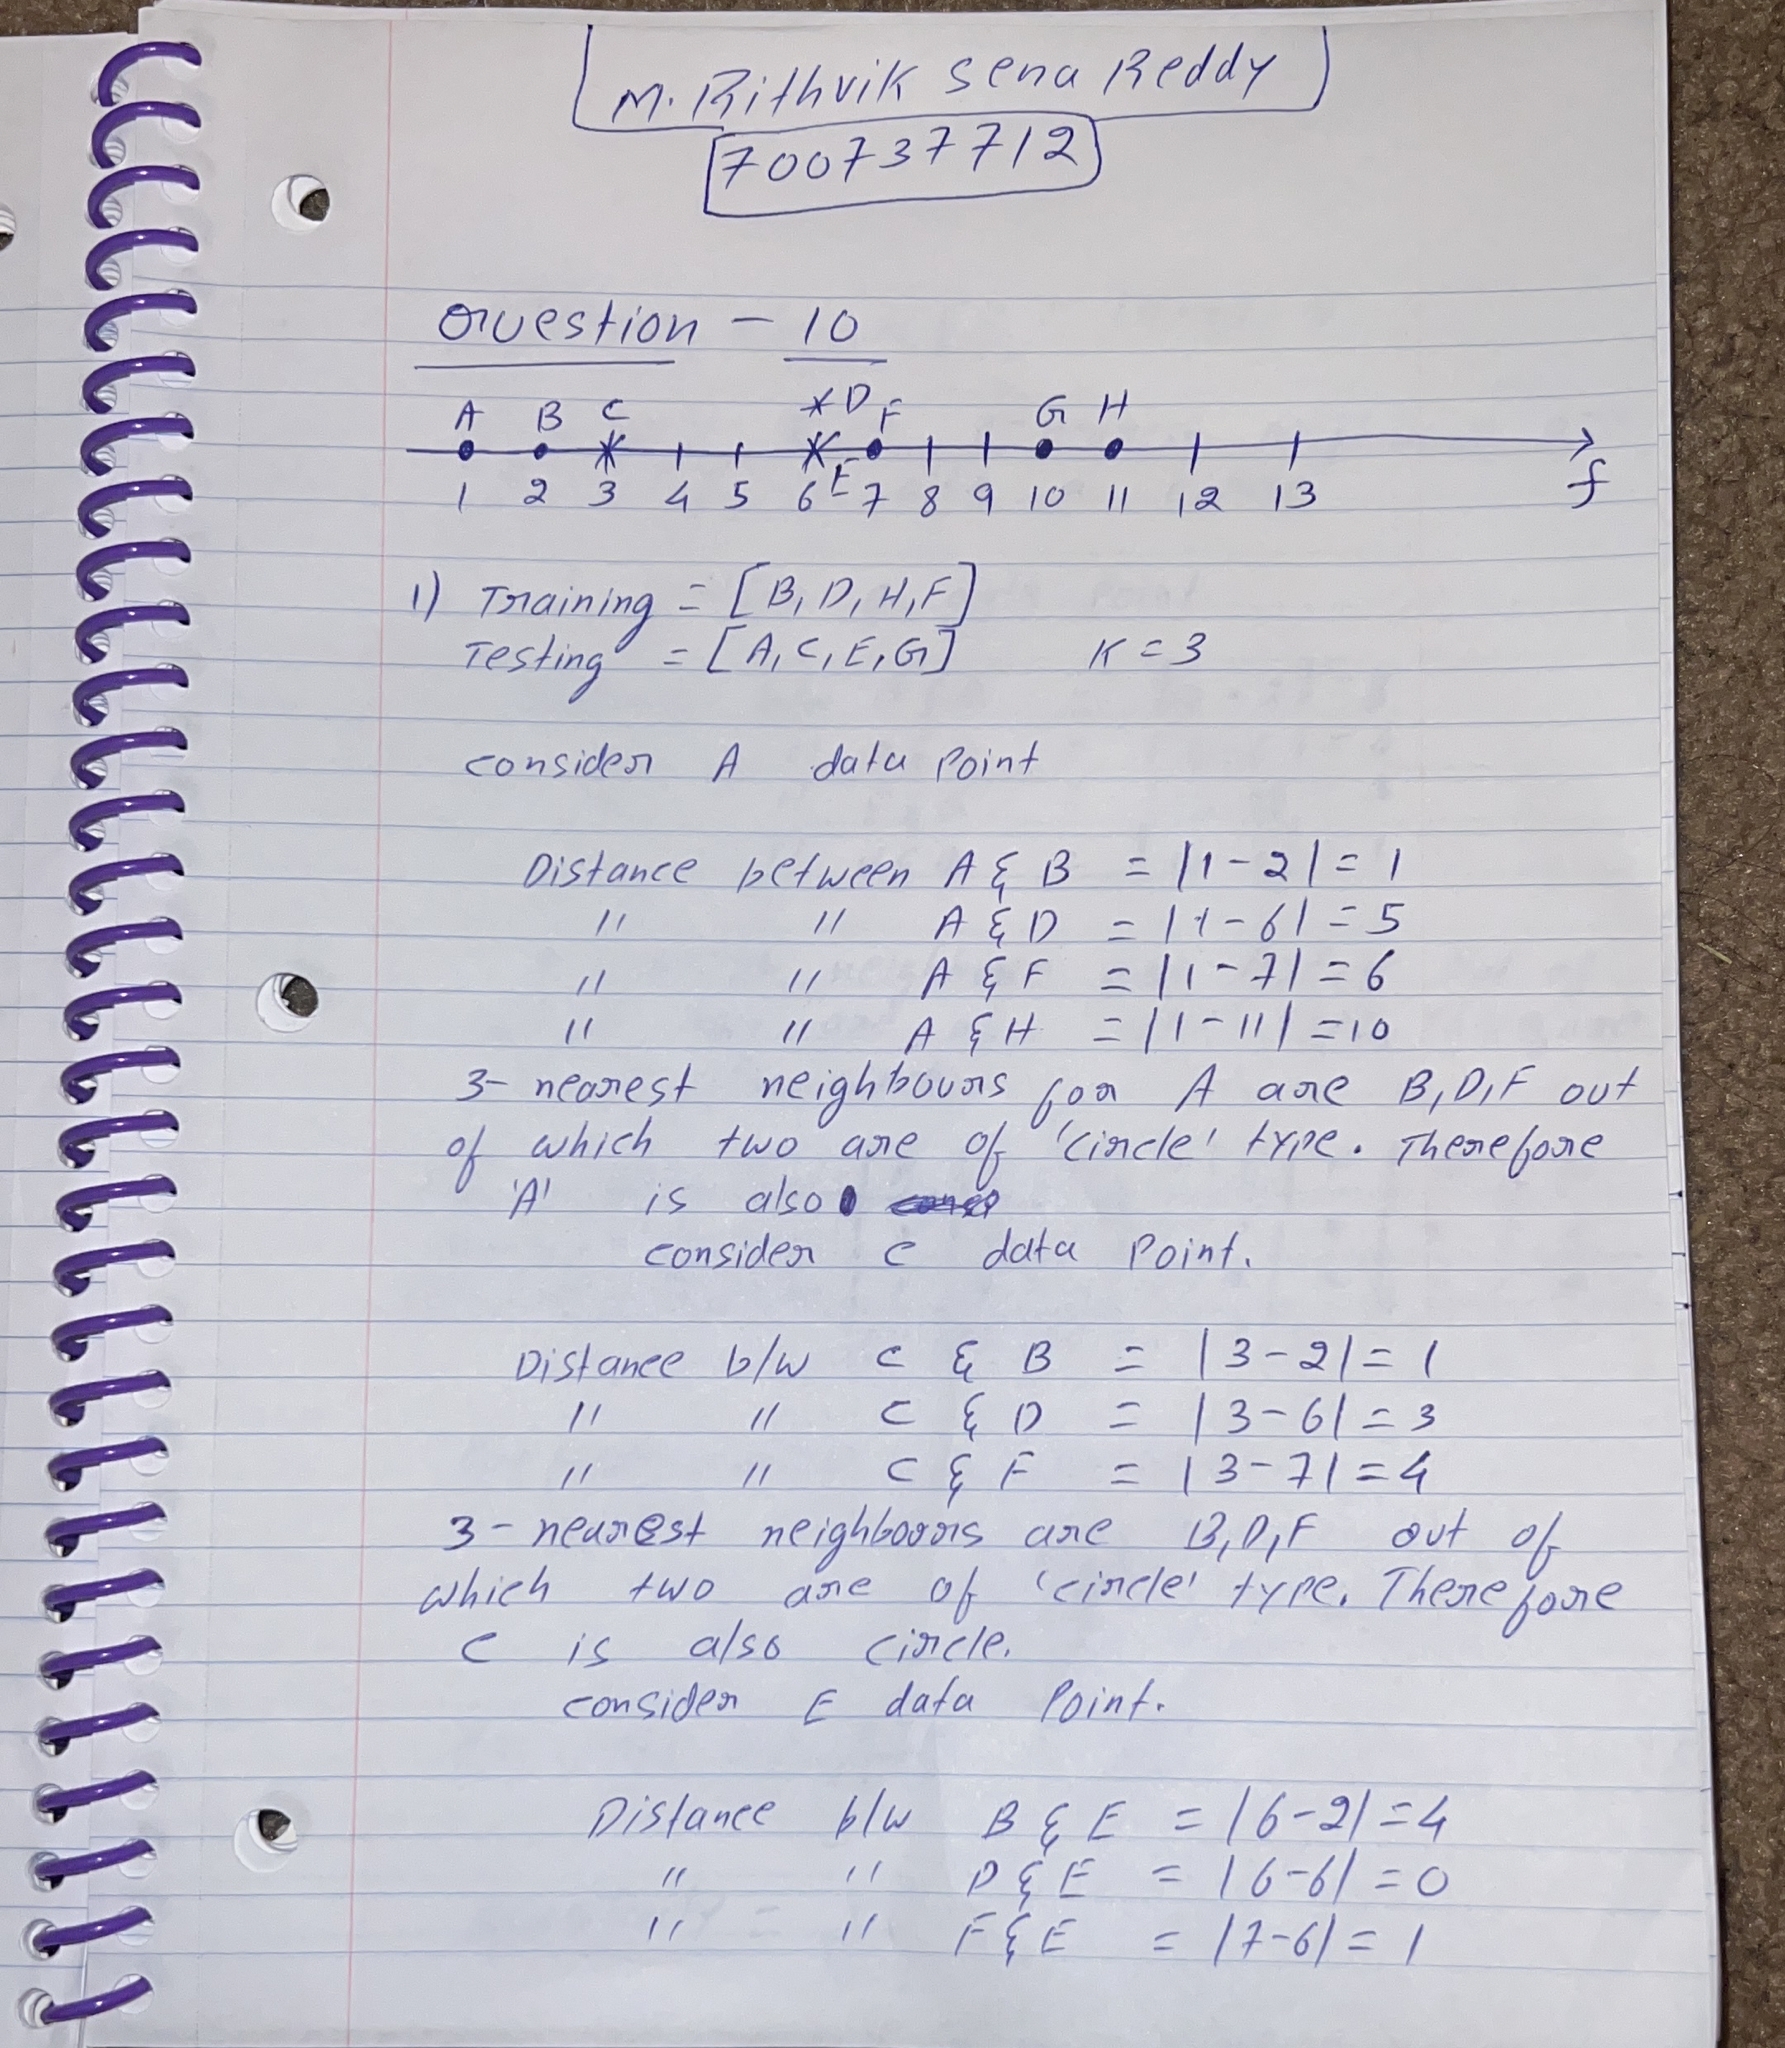 M. Rithvik Sena Reddy
700737712
Question - 10
A B C *D F G H
1 2 3 4 5 6 E 7 8 9 10 11 12 13 f
1) Training = [B, D, H, F]
Testing = [A, C, E, G] K = 3
consider A data Point
Distance between A & B = |1-2| = 1
" " A & D = |1-6| = 5
" " A & F = |1-7| = 6
" " A & H = |1-11| = 10
3- nearest neighbours for A are B, D, F out
of which two are of 'circle' type. Therefore
'A' is also
consider C data Point.
Distance b/w C & B = |3-2| = 1
" " C & D = |3-6| = 3
" " C & F = |3-7| = 4
3- nearest neighbours are B, D, F out of
which two are of 'circle' type. Therefore
C is also circle.
consider E data Point.
Distance b/w B & E = |6-2| = 4
" " D & E = |6-6| = 0
" " F & E = |7-6| = 1